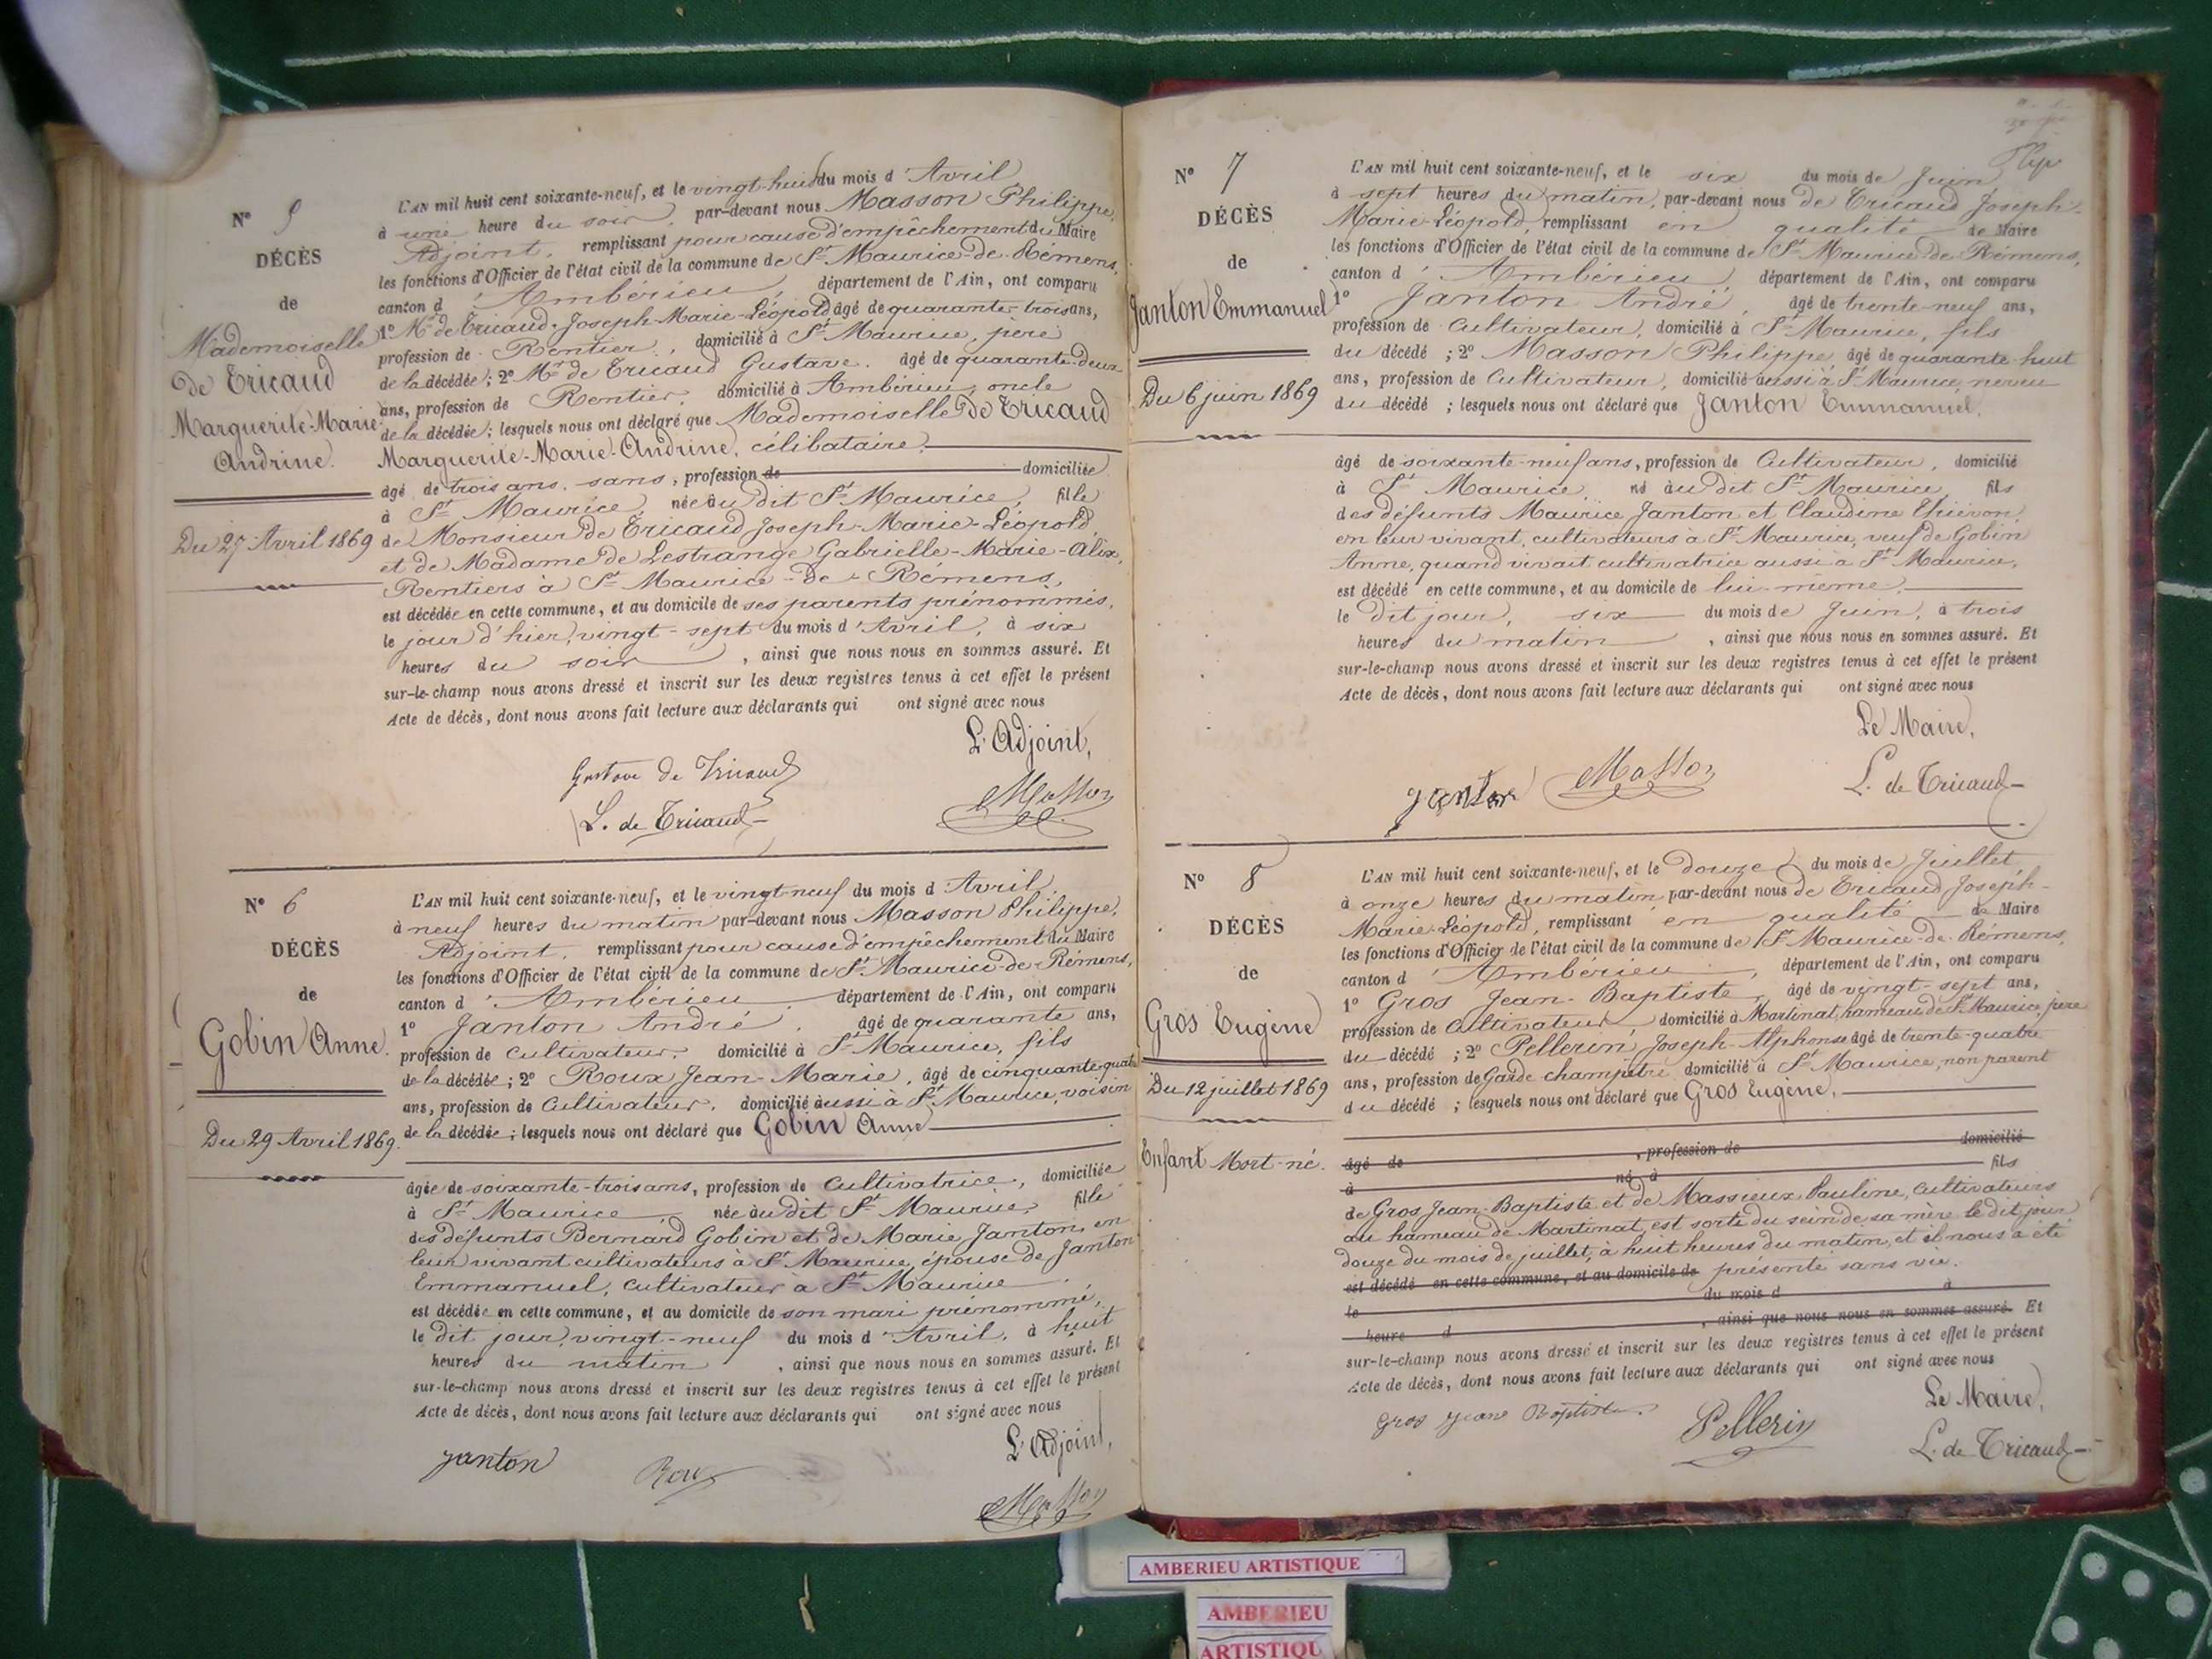 N° 5
DÉCÈS
de
Mademoiselle
de Tricaud
Marguerite-Marie-
Andrine.
Du 27 Avril 1869
L'AN mil huit cent soixante-neuf, et le vingt-huit du mois d'Avril
à une heure du soir, par-devant nous Masson Philippe,
Adjoint, remplissant pour cause d'empêchement du Maire
les fonctions d'Officier de l'état civil de la commune de St Maurice-de-Rémens,
canton d'Ambérieu, département de l'Ain, ont comparu
1° Mr de Tricaud, Joseph-Marie-Léopold âgé de quarante-trois ans,
profession de Rentier, domicilié à St Maurice, père
de la décédée ; 2° Mr de Tricaud Gustave, âgé de quarante-deux
ans, profession de Rentier, domicilié à Ambérieu, oncle
de la décédée ; lesquels nous ont déclaré que Mademoiselle de Tricaud
Marguerite-Marie-Andrine, célibataire,
âgé de trois ans, sans, profession de domiciliée
à St Maurice, née au dit St Maurice, fille
de Monsieur de Tricaud Joseph-Marie-Léopold,
et de Madame de Lestrange Gabrielle-Marie-Alix,
Rentiers à St Maurice-de-Rémens,
est décédée en cette commune, et au domicile de ses parents prénommés,
le jour d'hier, vingt-sept du mois d'Avril, à six
heures du soir, ainsi que nous nous en sommes assuré. Et
sur-le-champ nous avons dressé et inscrit sur les deux registres tenus à cet effet le présent
Acte de décès, dont nous avons fait lecture aux déclarants qui ont signé avec nous
L'Adjoint,
Gustave de Tricaud
L. de Tricaud
Masson
N° 6
DÉCÈS
de
Gobin Anne.
Du 29 Avril 1869.
L'AN mil huit cent soixante-neuf, et le vingt-neuf du mois d'Avril
à neuf heures du matin par-devant nous Masson Philippe,
Adjoint, remplissant pour cause d'empêchement du Maire
les fonctions d'Officier de l'état civil de la commune de St Maurice-de-Rémens,
canton d'Ambérieu, département de l'Ain, ont comparu
1° Janton André, âgé de quarante ans,
profession de cultivateur, domicilié à St Maurice, fils
de la décédée ; 2° Roux Jean-Marie, âgé de cinquante-quatre
ans, profession de Cultivateur, domicilié aussi à St Maurice, voisin
de la décédée ; lesquels nous ont déclaré que Gobin Anne
âgée de soixante-trois ans, profession de Cultivatrice, domiciliée
à St Maurice, née au dit St Maurice, fille
des défunts Bernard Gobin et de Marie Janton, en
leur vivant cultivateurs à St Maurice, épouse de Janton
Emmanuel, cultivateur à St Maurice,
est décédée en cette commune, et au domicile de son mari prénommé,
le dit jour, vingt-neuf du mois d'Avril, à huit
heures du matin, ainsi que nous nous en sommes assuré. Et
sur-le-champ nous avons dressé et inscrit sur les deux registres tenus à cet effet le présent
Acte de décès, dont nous avons fait lecture aux déclarants qui ont signé avec nous
L'Adjoint,
Janton
Roux
Masson
N° 7
DÉCÈS
de
Janton Emmanuel
Du 6 juin 1869
L'AN mil huit cent soixante-neuf, et le six du mois de Juin
à sept heures du matin, par-devant nous de Tricaud Joseph-
Marie-Léopold, remplissant en qualité de Maire
les fonctions d'Officier de l'état civil de la commune de St Maurice-de-Rémens,
canton d'Ambérieu, département de l'Ain, ont comparu
1° Janton André, âgé de trente-neuf ans,
profession de Cultivateur, domicilié à St Maurice, fils
du décédé ; 2° Masson Philippe, âgé de quarante-huit
ans, profession de Cultivateur, domicilié aussi à St Maurice, neveu
du décédé ; lesquels nous ont déclaré que Janton Emmanuel,
âgé de soixante-neuf ans, profession de Cultivateur, domicilié
à St Maurice, né au dit St Maurice, fils
des défunts Maurice Janton et Claudine Thiévon,
en leur vivant, cultivateurs à St Maurice, veuf de Gobin
Anne, quand vivait cultivatrice aussi à St Maurice,
est décédé en cette commune, et au domicile de lui-même,
le dit jour, six du mois de Juin, à trois
heures du matin, ainsi que nous nous en sommes assuré. Et
sur-le-champ nous avons dressé et inscrit sur les deux registres tenus à cet effet le présent
Acte de décès, dont nous avons fait lecture aux déclarants qui ont signé avec nous
Le Maire,
Janton
Masson
L. de Tricaud
N° 8
DÉCÈS
de
Gros Eugène
Du 12 juillet 1869
Enfant Mort-né.
L'AN mil huit cent soixante-neuf, et le Douze du mois de Juillet
à onze heures du matin, par-devant nous de Tricaud Joseph-
Marie-Léopold, remplissant en qualité de Maire
les fonctions d'Officier de l'état civil de la commune de St Maurice-de-Rémens,
canton d'Ambérieu, département de l'Ain, ont comparu
1° Gros Jean-Baptiste, âgé de vingt-sept ans,
profession de Cultivateur domicilié à Martinat, hameau de St Maurice, père
du décédé ; 2° Pellerin, Joseph-Alphonse âgé de trente-quatre
ans, profession de Garde champêtre domicilié à St Maurice, non parent
du décédé ; lesquels nous ont déclaré que Gros Eugène,
âgé de , profession de domicilié
à né à fils
de Gros Jean-Baptiste et de Massieux Pauline, cultivateurs
au hameau de Martinat, est sorti du sein de sa mère le dit jour
douze du mois de juillet, à huit heures du matin, et il nous a été
est décédé en cette commune, et au domicile de présenté sans vie.
le du mois d à
heure d , ainsi que nous nous en sommes assuré. Et
sur-le-champ nous avons dressé et inscrit sur les deux registres tenus à cet effet le présent
Acte de décès, dont nous avons fait lecture aux déclarants qui ont signé avec nous
Le Maire,
Gros Jean Baptiste
Pellerin
L. de Tricaud
AMBERIEU ARTISTIQUE
AMBERIEU
ARTISTIQU